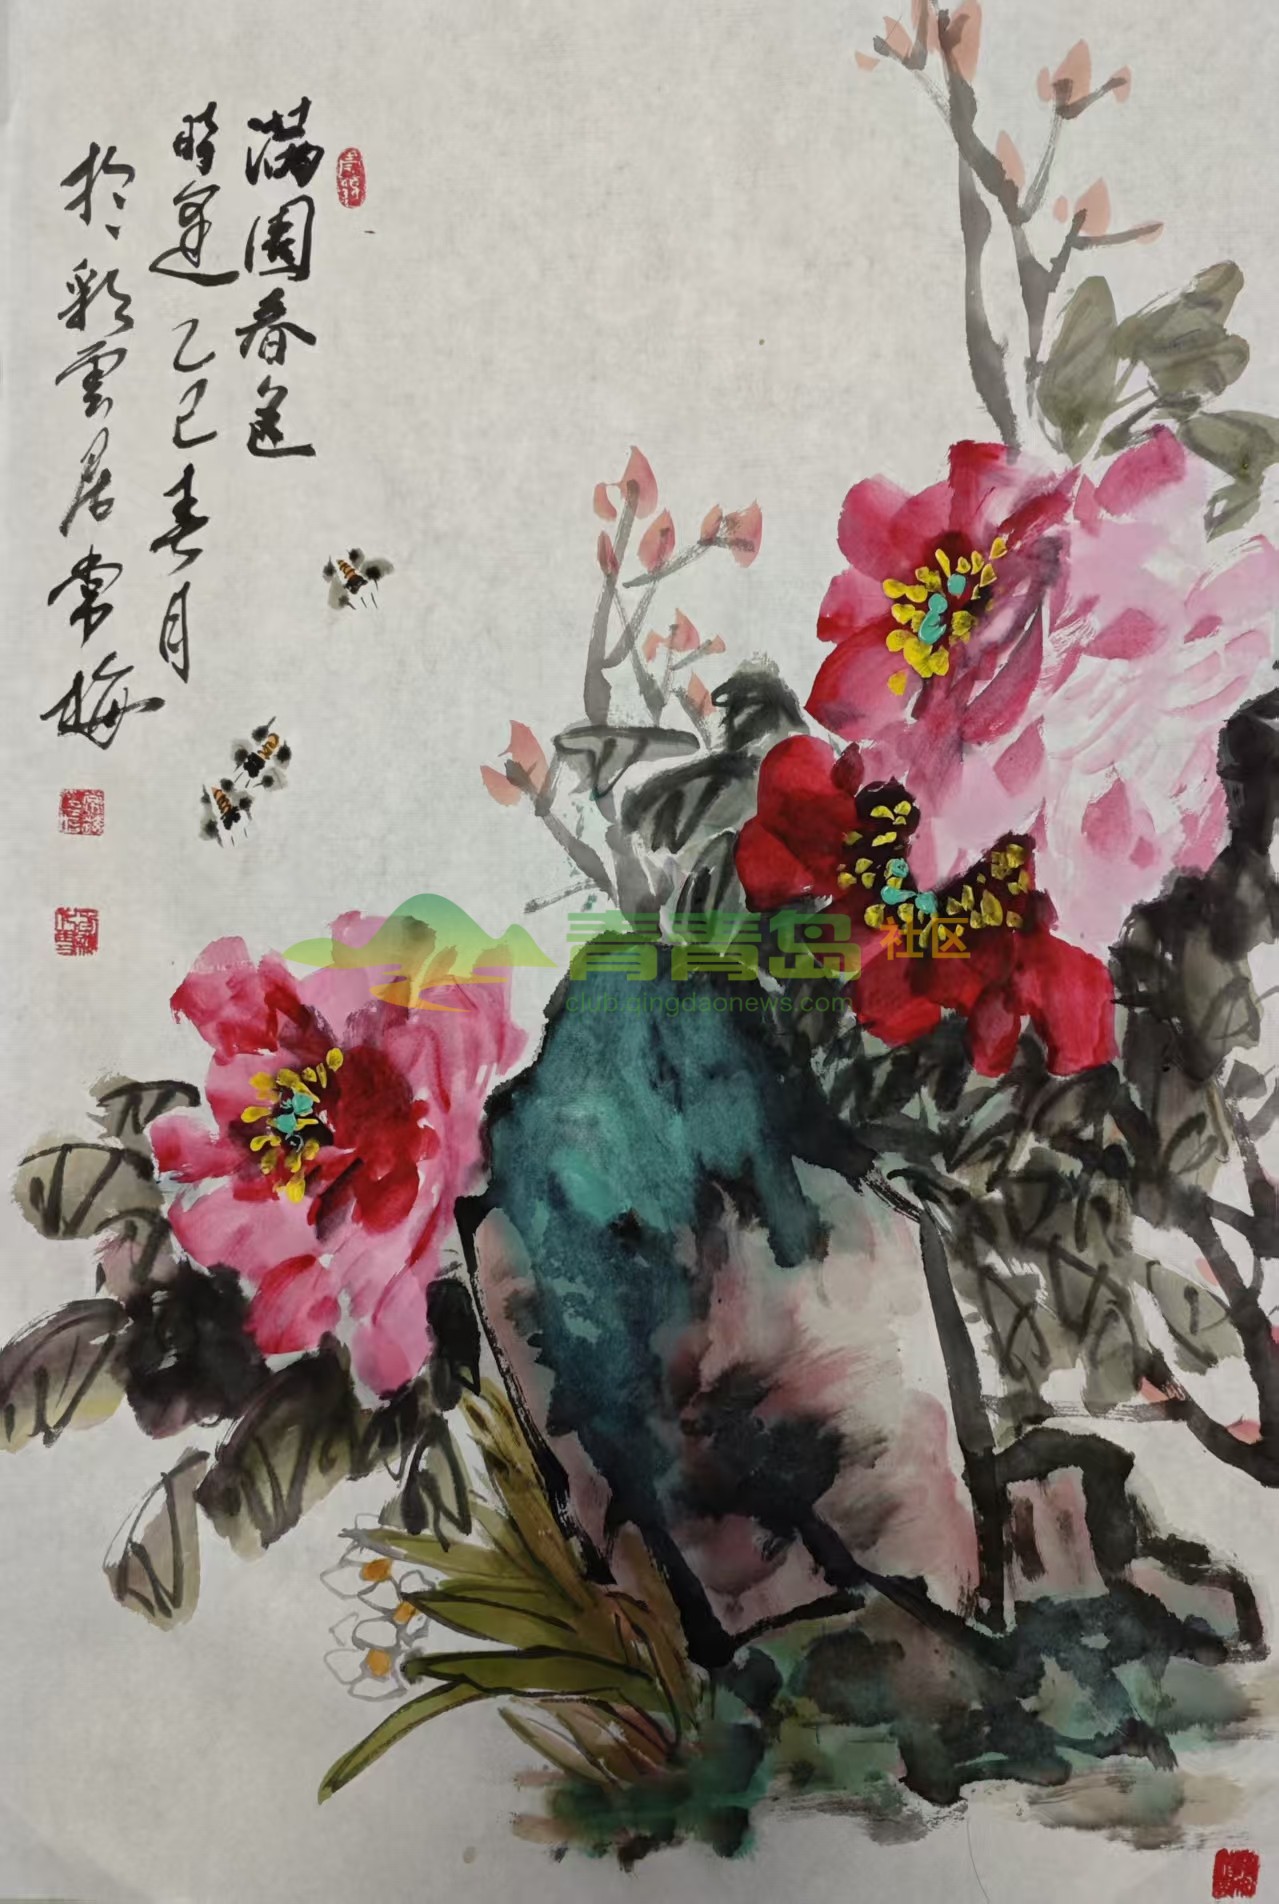 满園春色
時逢乙巳春月
於彩雲居常梅
青青岛社区
club.qingdaonews.com